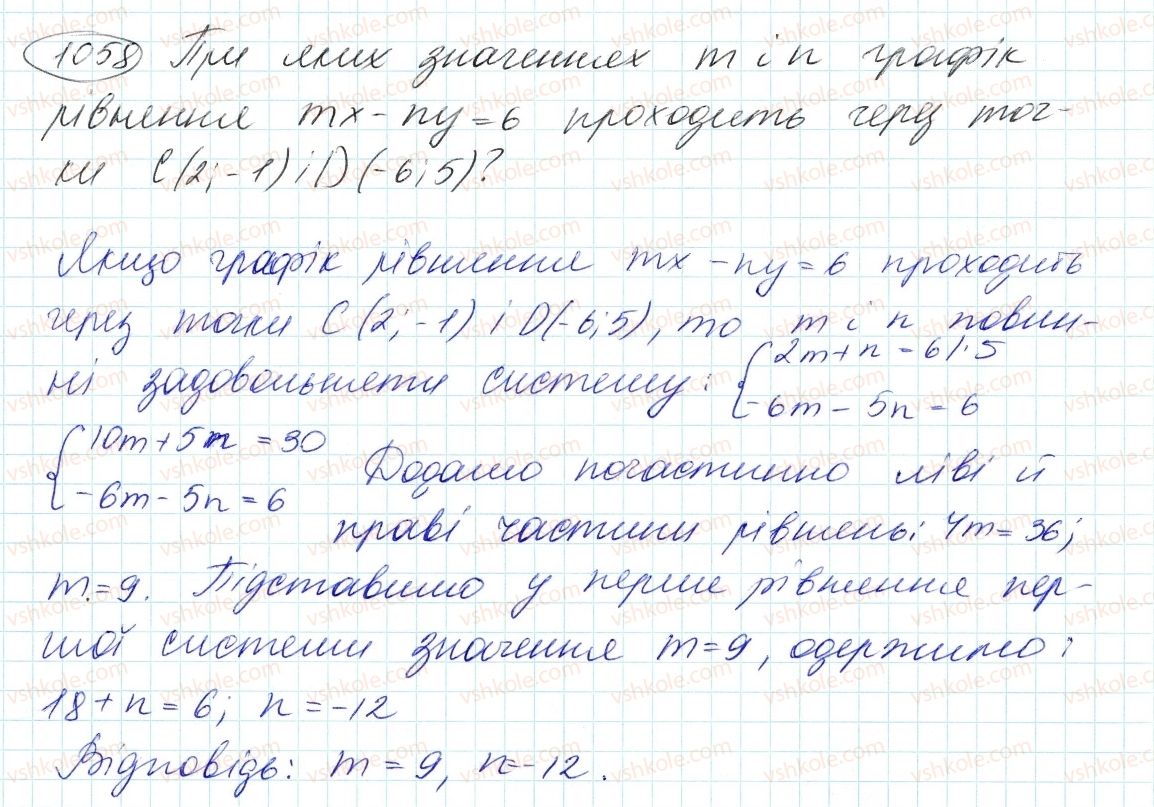 1058 При яких значеннях m і n графік
рівняння mx - ny = 6 проходить через точ-
ки C(2; -1) і D(-6; 5)?
Якщо графік рівняння mx - ny = 6 проходить
через точки C(2; -1) і D(-6; 5), то m і n повин-
ні задовольняти систему: { 2m + n = 6 |·5
-6m - 5n = 6
{ 10m + 5n = 30
-6m - 5n = 6
Додамо почастинно ліві й
праві частини рівнянь: 4m = 36;
m = 9. Підставимо у перше рівняння пер-
шої системи значення m = 9, одержимо:
18 + n = 6; n = -12
Відповідь: m = 9, n = -12.